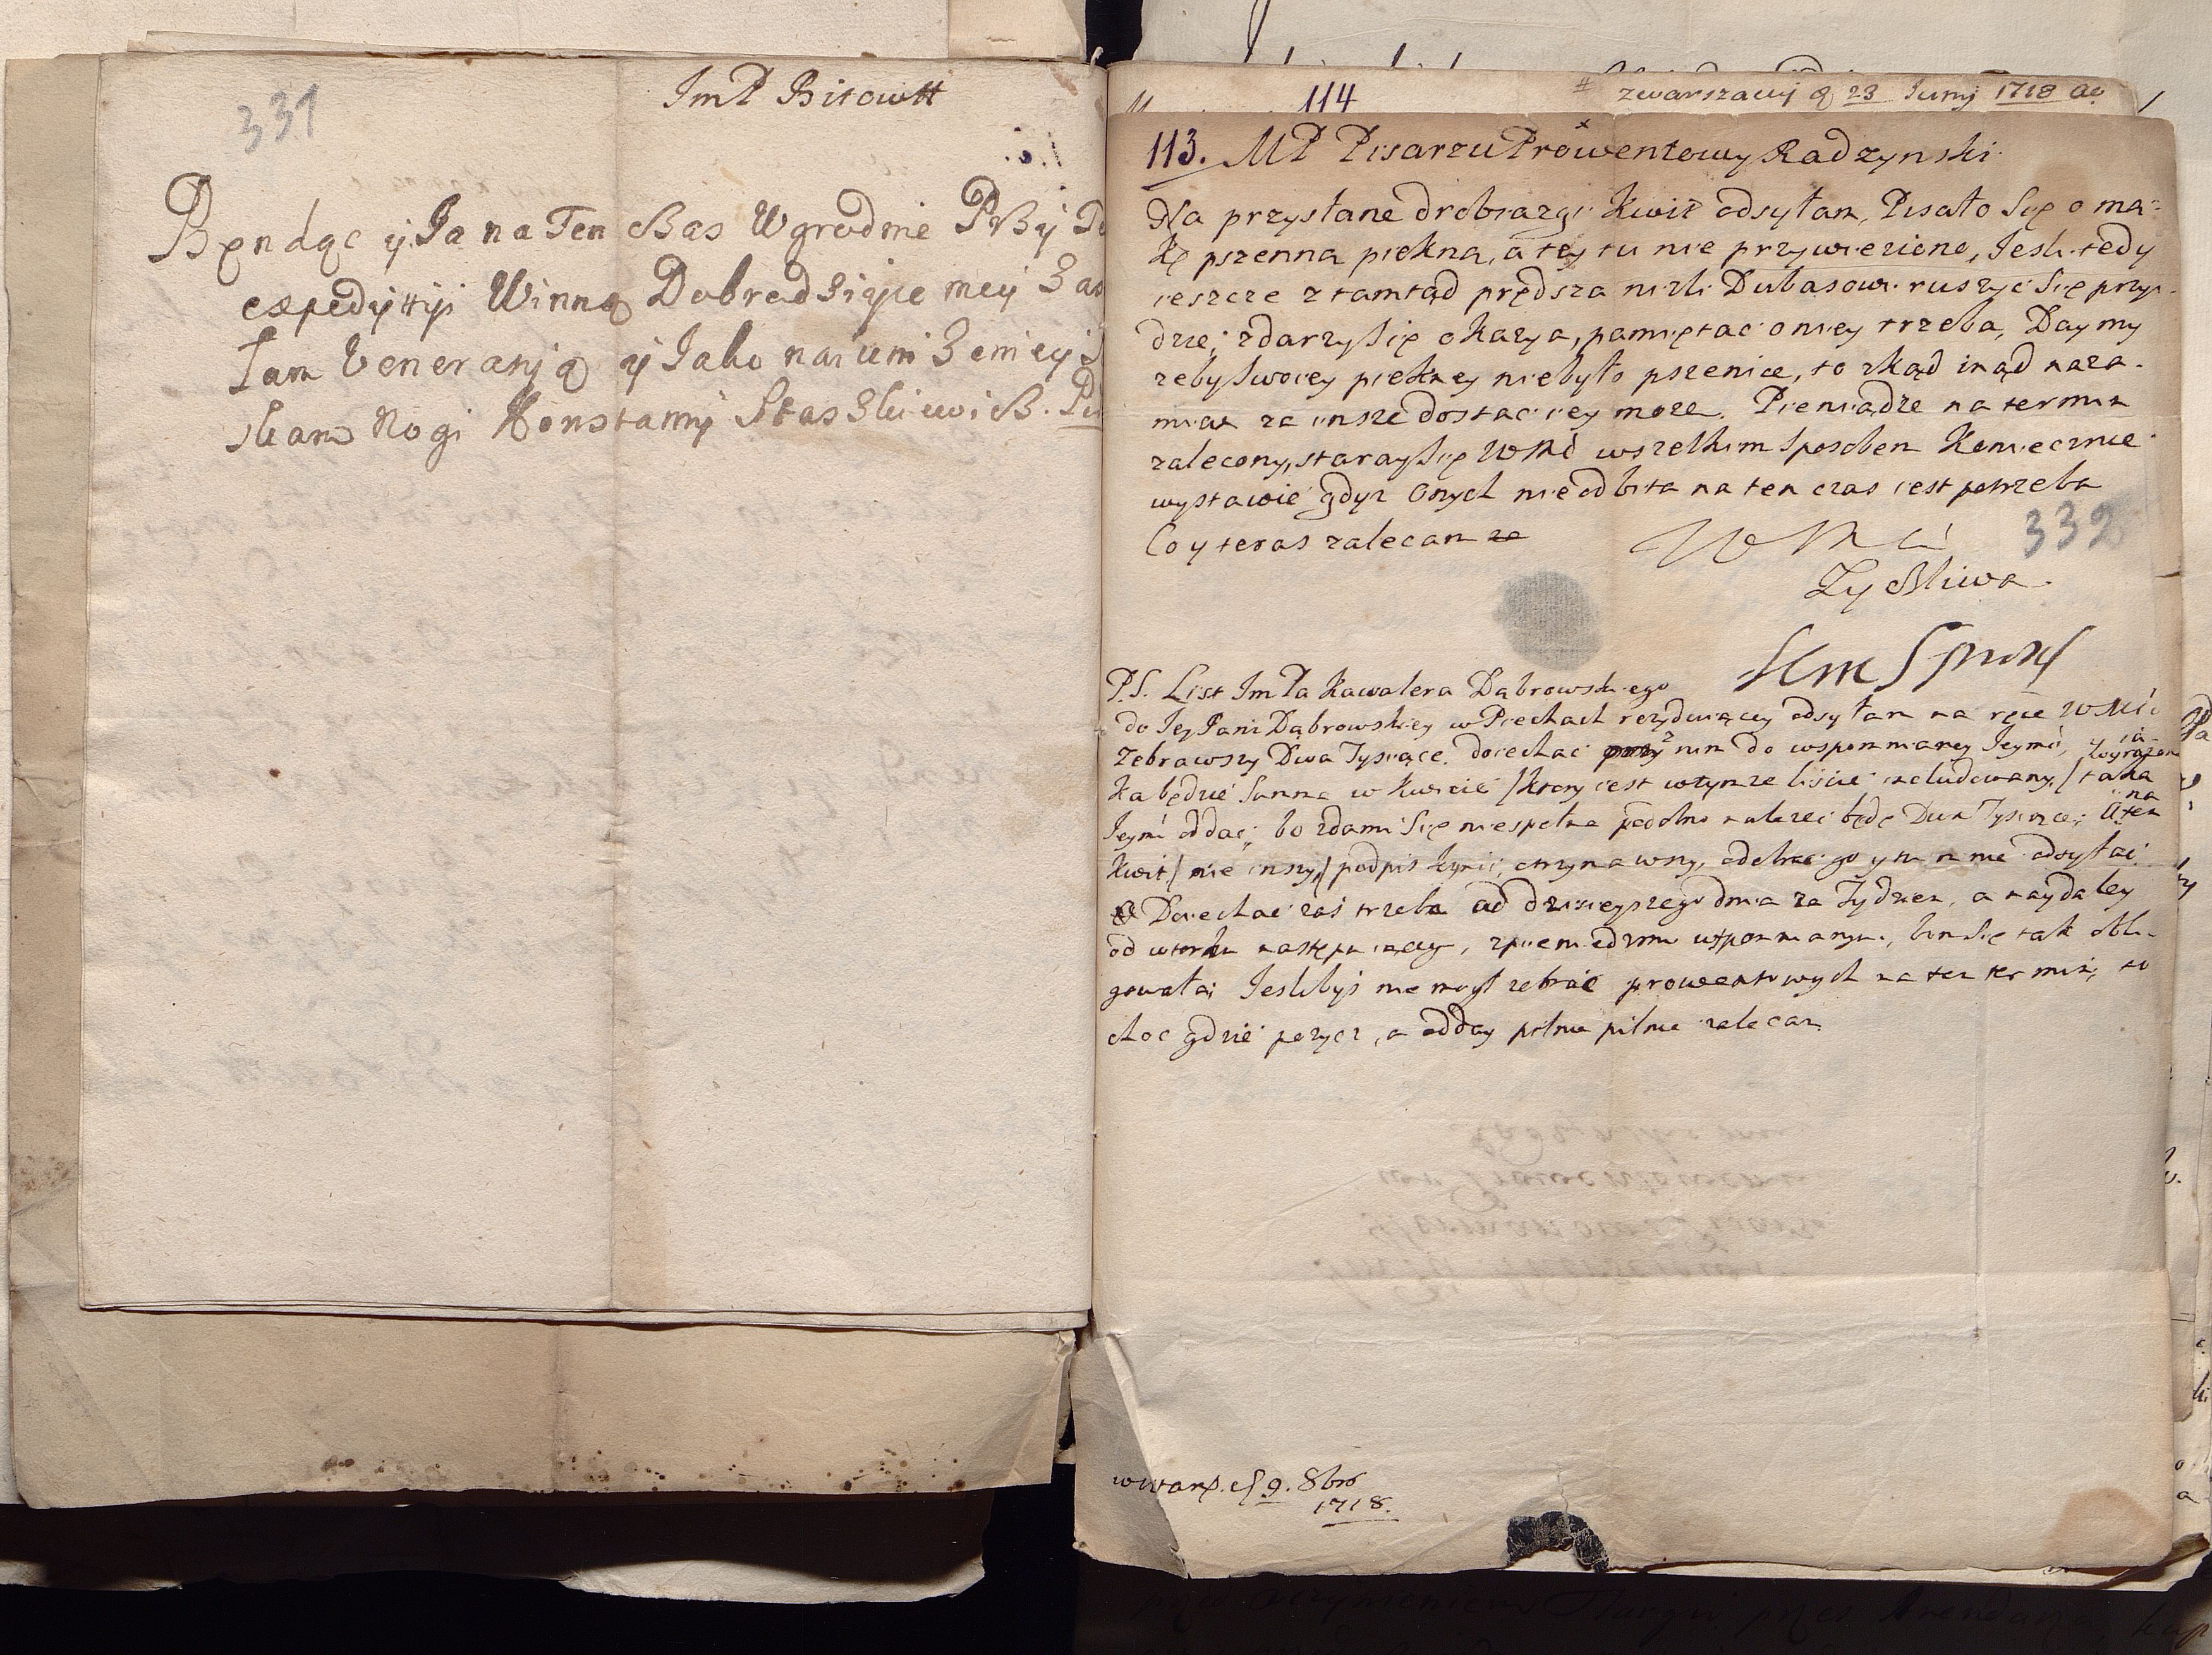 331
ImP Bitowtt
Bęndąc ÿ Ja na Ten cBas Wgrodnie PrBÿ
expedÿttÿi Winną Dobrodziÿce meÿ
Łam Veneranją ÿ Jako naiuniZenieÿ
skam Nogi Konstantÿ StasZkiewicB.
114
zwarszawy d 23 Juny 1718 ao
113. MP Pisarzu Prowentowy Radzynski
Na przysłane drobiazgi Kwit odsyłam, Pisało Się o mą-
kę pszenną piekną, a tey tu nie przywieziono, Jesli tedy
ieszcze ztamtąd prędsza nizli Dubasowi ruszyć Się przy-
dzie, zdarzy Się okazya, pamiętać o niey trzeba, Daymy
zeby Swoiey piekney niebyło pszenice, to zkąd inąd na za-
mian za insze dostać iey może. Pieniądze na termin
zalecony, staray Się WMć wszelkim Sposobem Koniecznie
wystawić gdyz onych nieodbita na ten czas iest potrzeba
Co y teras zalecam
WMci
332
Zyczliwa
P.S. List ImPa Kawalera Dąbrowskiego
do Jey Pani Dąbrowskiey w Piechach rezyduiącey odsyłam na ręce WMći
Zebrawszy Dwa Tysiące. doiechać z nim do wspomnianey Jeymci, iá wyrażon
ka będzie Summa w kwicie /ktory iest wtymze liście includowany,/ taka
Jeymi oddać, bo zdami Się niespełna podobno nalezeć będę Dwa Tysiące; a na ten
kwit,/ nie inszy,/ podpis Jeymći, otrzymawszy, odebrać go y tu mnie odsyłać
Doiechać zaś trzeba od dzisieyszego dnia za Tydzien, a naydaley
od wtorku następuiącego, zpieniedzmi wspomnianymi, bom Się tak obli-
gowała; Jeslibyś nie mogł zebrać prowentowych na ten termin, to
choc gdzie pozycz, a odday pilno pilno zalecam
wWarß. d 9. 8bro
1718.